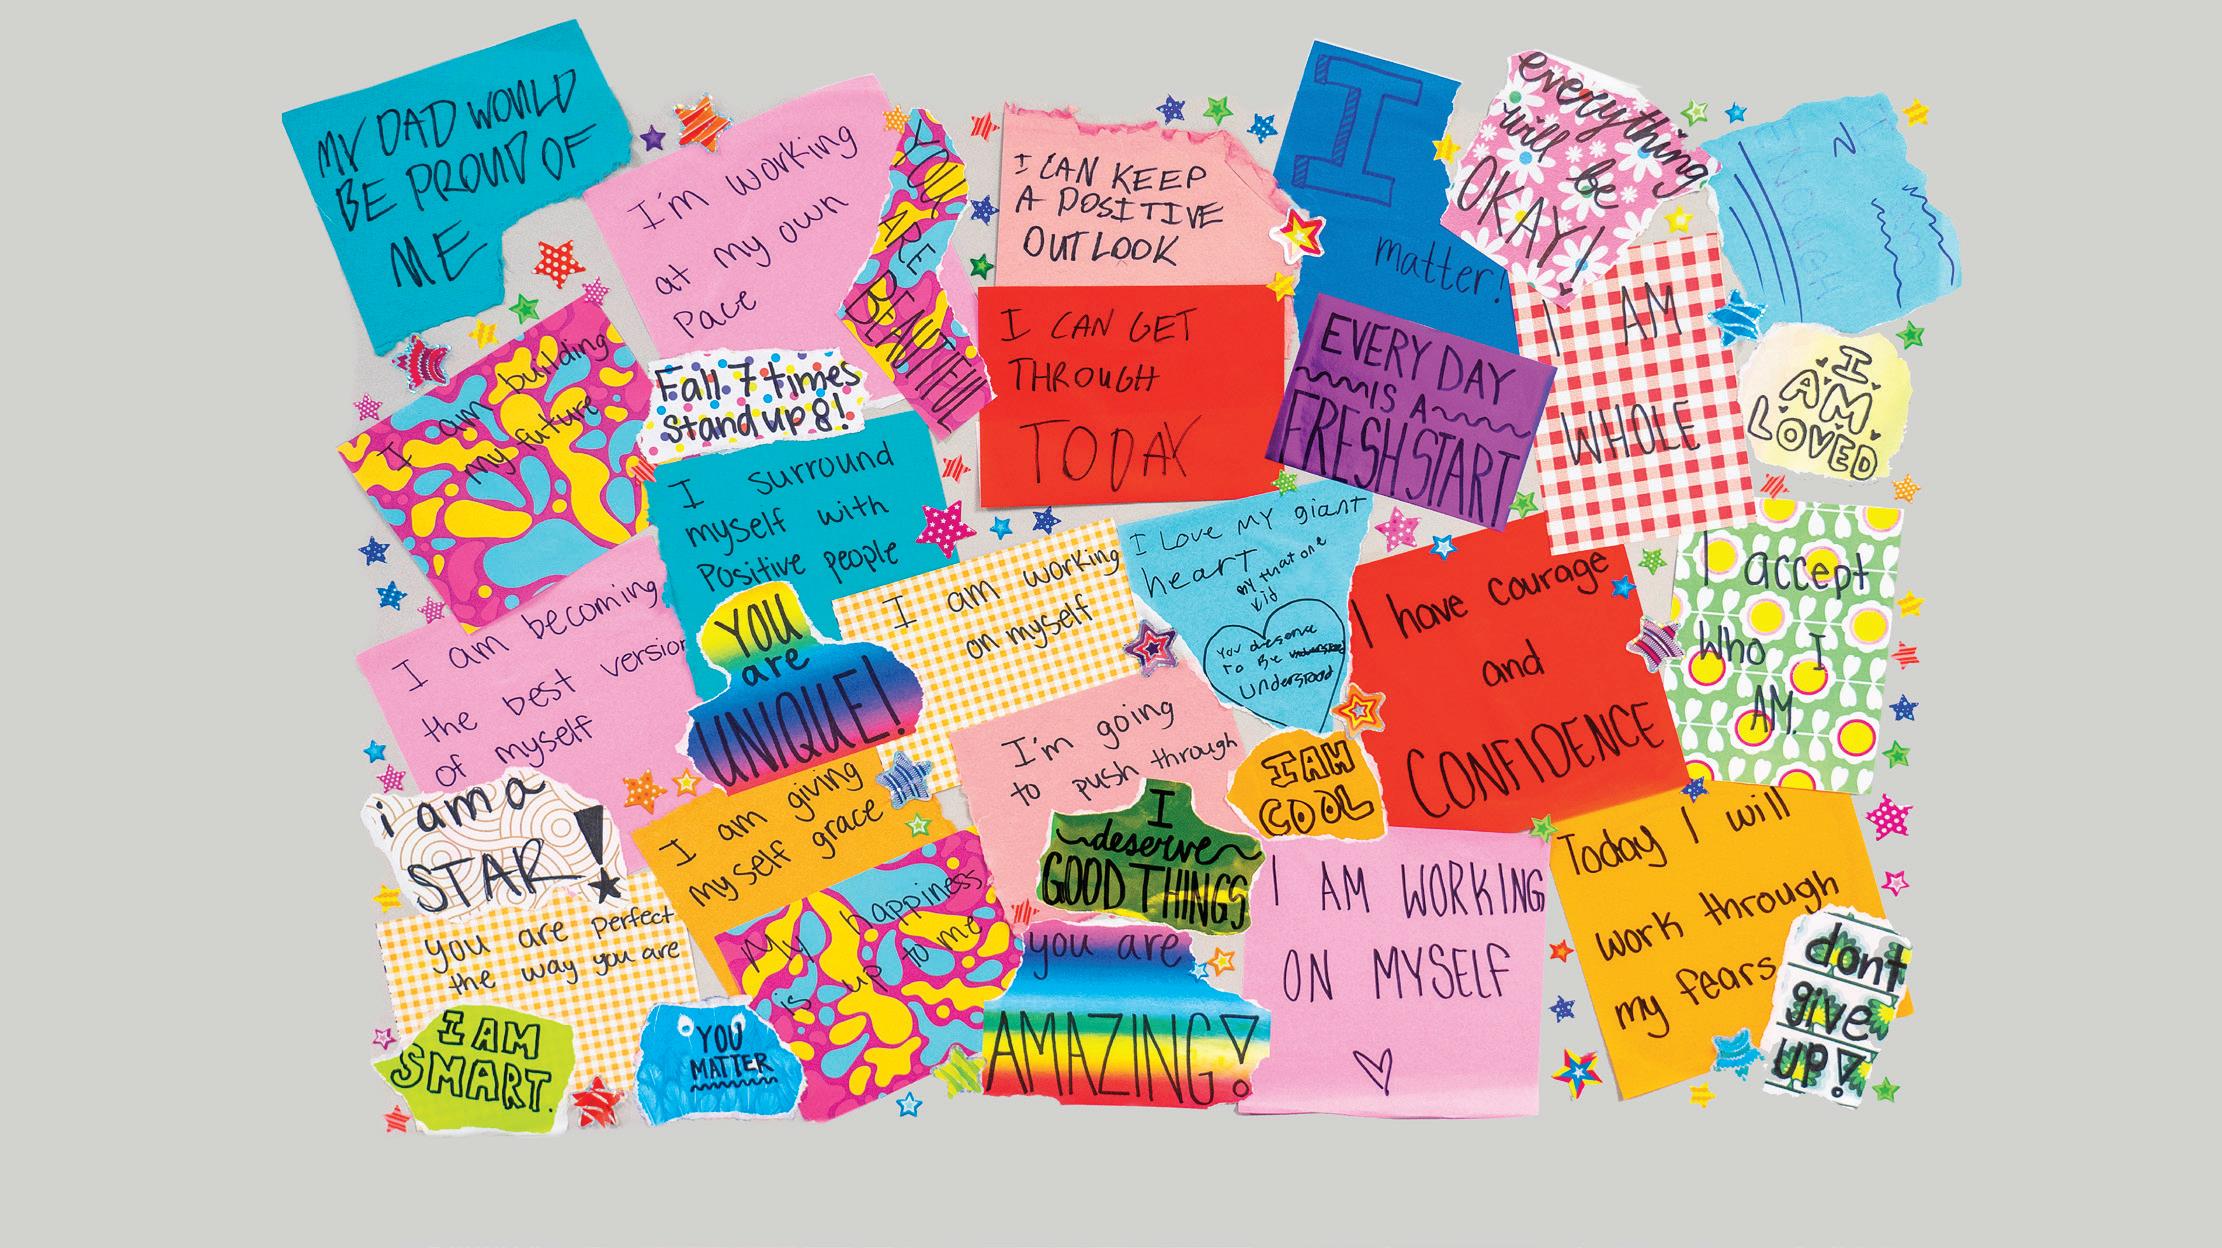 MY DAD WOULD
BE PROUD OF
ME
I'm working
at my own
Pace
YOU
ARE
BEAUTIFUL
I CAN KEEP
A POSITIVE
OUTLOOK
I
matter!
everything
will be
OKAY!
I AM
ENOUGH
I am building
my future
Fall 7 times
Stand up 8!
I CAN GET
THROUGH
TODAY
EVERY DAY
IS A
FRESH START
I AM
WHOLE
I
AM
LOVED
I surround
myself with
Positive people
I Love MY giant
heart
my that one
kid
You deserve
To Be
Understood
I have courage
and
CONFIDENCE
I accept
Who I
AM.
I am becoming
the best version
of myself
YOU
are
UNIQUE!
I am working
on myself
I'm going
to push through
I AM
COOL
i am a
STAR!
I am giving
myself grace
I
deserve
GOOD THINGS
I AM WORKING
ON MYSELF
Today I will
work through
my fears
dont
give
up!
you are perfect
the way you are
My happiness
is up to me
you are
AMAZING!
I AM
SMART.
YOU
MATTER